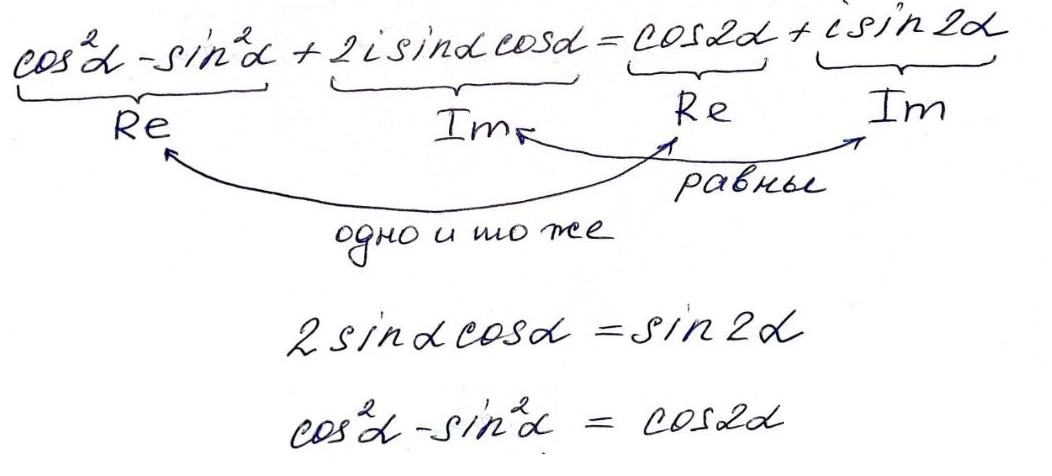 cos²α - sin²α + 2i sinα cosα = cos2α + i sin2α
Re Im Re Im
равны
одно и то же
2 sinα cosα = sin2α
cos²α - sin²α = cos2α